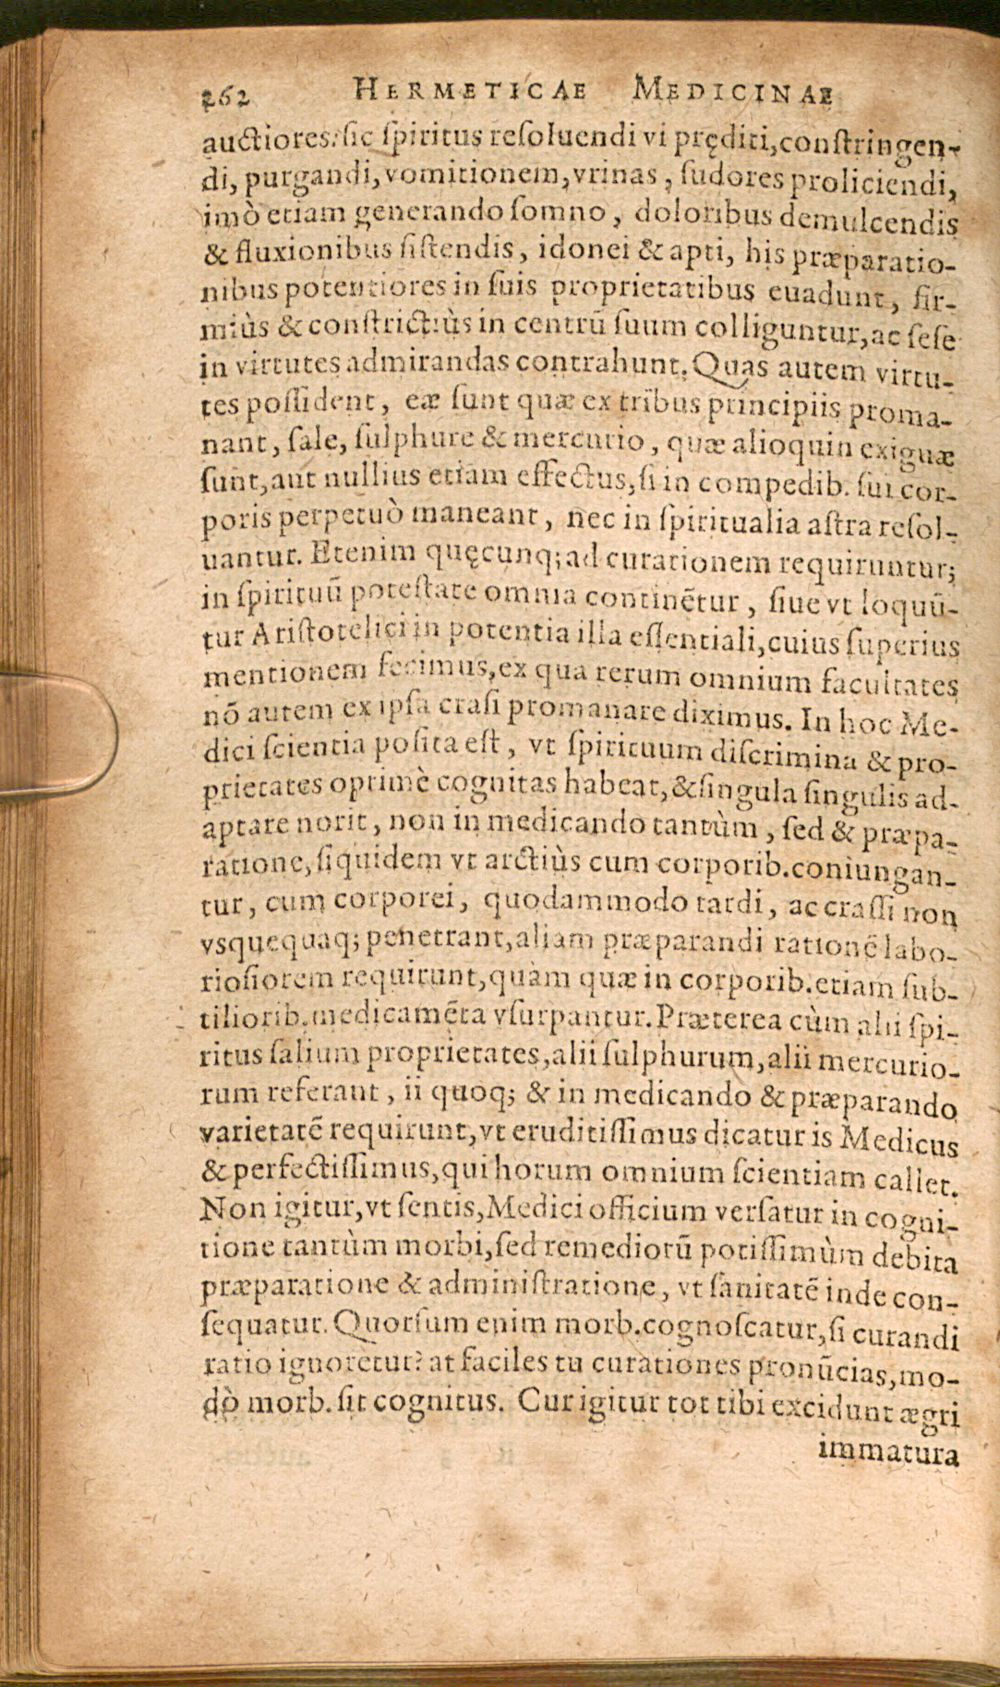 262 HERMETICAE MEDICINAE
auctiores: sic spiritus resoluendi vi pręditi, constringen-
di, purgandi, vomitionem, vrinas, sudores proliciendi,
imò etiam generando somno, doloribus demulcendis
& fluxionibus sistendis, idonei & apti, his præparatio-
nibus potentiores in suis proprietatibus euadunt, fir-
miùs & constrictiùs in centrū suum colliguntur, ac sese
in virtutes admirandas contrahunt. Quas autem virtu-
tes possident, eæ sunt quæ ex tribus principiis proma-
nant, sale, sulphure & mercurio, quæ alioquin exiguæ
sunt, aut nullius etiam effectus, si in compedib. sui cor-
poris perpetuò maneant, nec in spiritualia astra resol-
uantur. Etenim quęcunq; ad curationem requiruntur;
in spirituū potestate omnia continētur, siue vt loquū-
tur Aristotelici in potentia illa essentiali, cuius superius
mentionem fecimus, ex qua rerum omnium facultates
nō autem ex ipsa crasi promanare diximus. In hoc Me-
dici scientia posita est, vt spirituum discrimina & pro-
prietates optimè cognitas habeat, & singula singulis ad-
aptare norit, non in medicando tantùm, sed & præpa-
ratione, siquidem vt arctiùs cum corporib. coniungan-
tur, cum corporei, quodammodo tardi, ac crassi non
vsquequaq; penetrant, aliam præparandi rationē labo-
riosiorem requirunt, quàm quæ in corporib. etiam sub-
tiliorib. medicamēta vsurpantur. Præterea cùm alii spi-
ritus salium proprietates, alii sulphurum, alii mercurio-
rum referant, ii quoq; & in medicando & præparando
varietatē requirunt, vt eruditissimus dicatur is Medicus
& perfectissimus, qui horum omnium scientiam callet.
Non igitur, vt sentis, Medici officium versatur in cogni-
tione tantùm morbi, sed remediorū potissimùm debita
præparatione & administratione, vt sanitatē inde con-
sequatur. Quorsum enim morb. cognoscatur, si curandi
ratio ignoretur? at faciles tu curationes pronūcias, mo-
dò morb. sit cognitus. Cur igitur tot tibi excidunt ægri
immatura